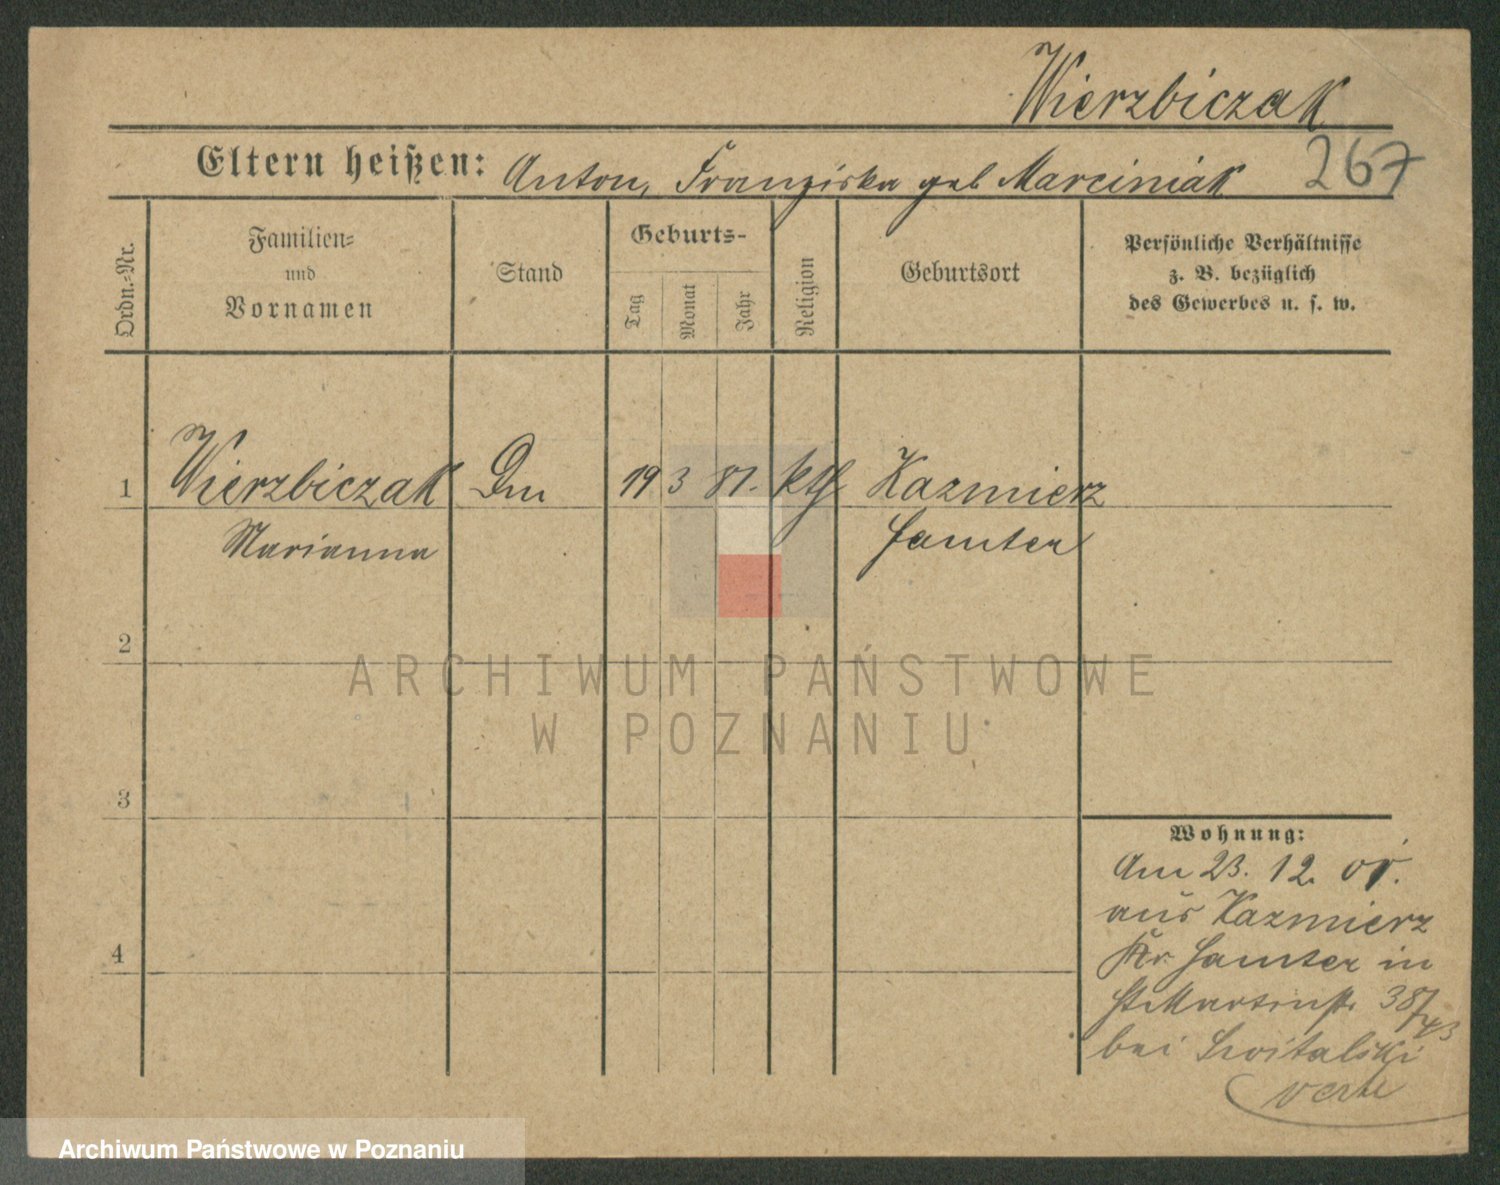 Wierzbiczak
Eltern heißen: Anton, Franziska geb Marciniak 267
Ordn.-Nr.
Familien-
und
Vornamen
Stand
Geburts-
Tag
Monat
Jahr
Religion
Geburtsort
Persönliche Verhältnisse
z. B. bezüglich
des Gewerbes u. s. w.
1 Wierzbiczak Dm 19 3 81. kth Kazmierz
Marianna Samter
2
ARCHIWUM PAŃSTWOWE
W POZNANIU
3
Wohnung:
Am 23. 12. 01.
aus Kazmierz
4
Kr. Samter in
St Martinstr. 38/43
bei Switalski
verte
Archiwum Państwowe w Poznaniu